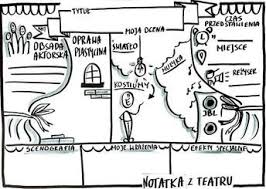 TYTUŁ
MOJA OCENA
CZAS
PRZEDSTAWIENIA
OBSADA
AKTORSKA
OPRAWA
PLASTYCZNA
ŚWIATŁO
MUZYKA
MIEJSCE
KOSTIUMY
REŻYSER
JBL
SCENOGRAFIA
MOJE WRAŻENIA
EFEKTY SPECJALNE
NOTATKA Z TEATRU